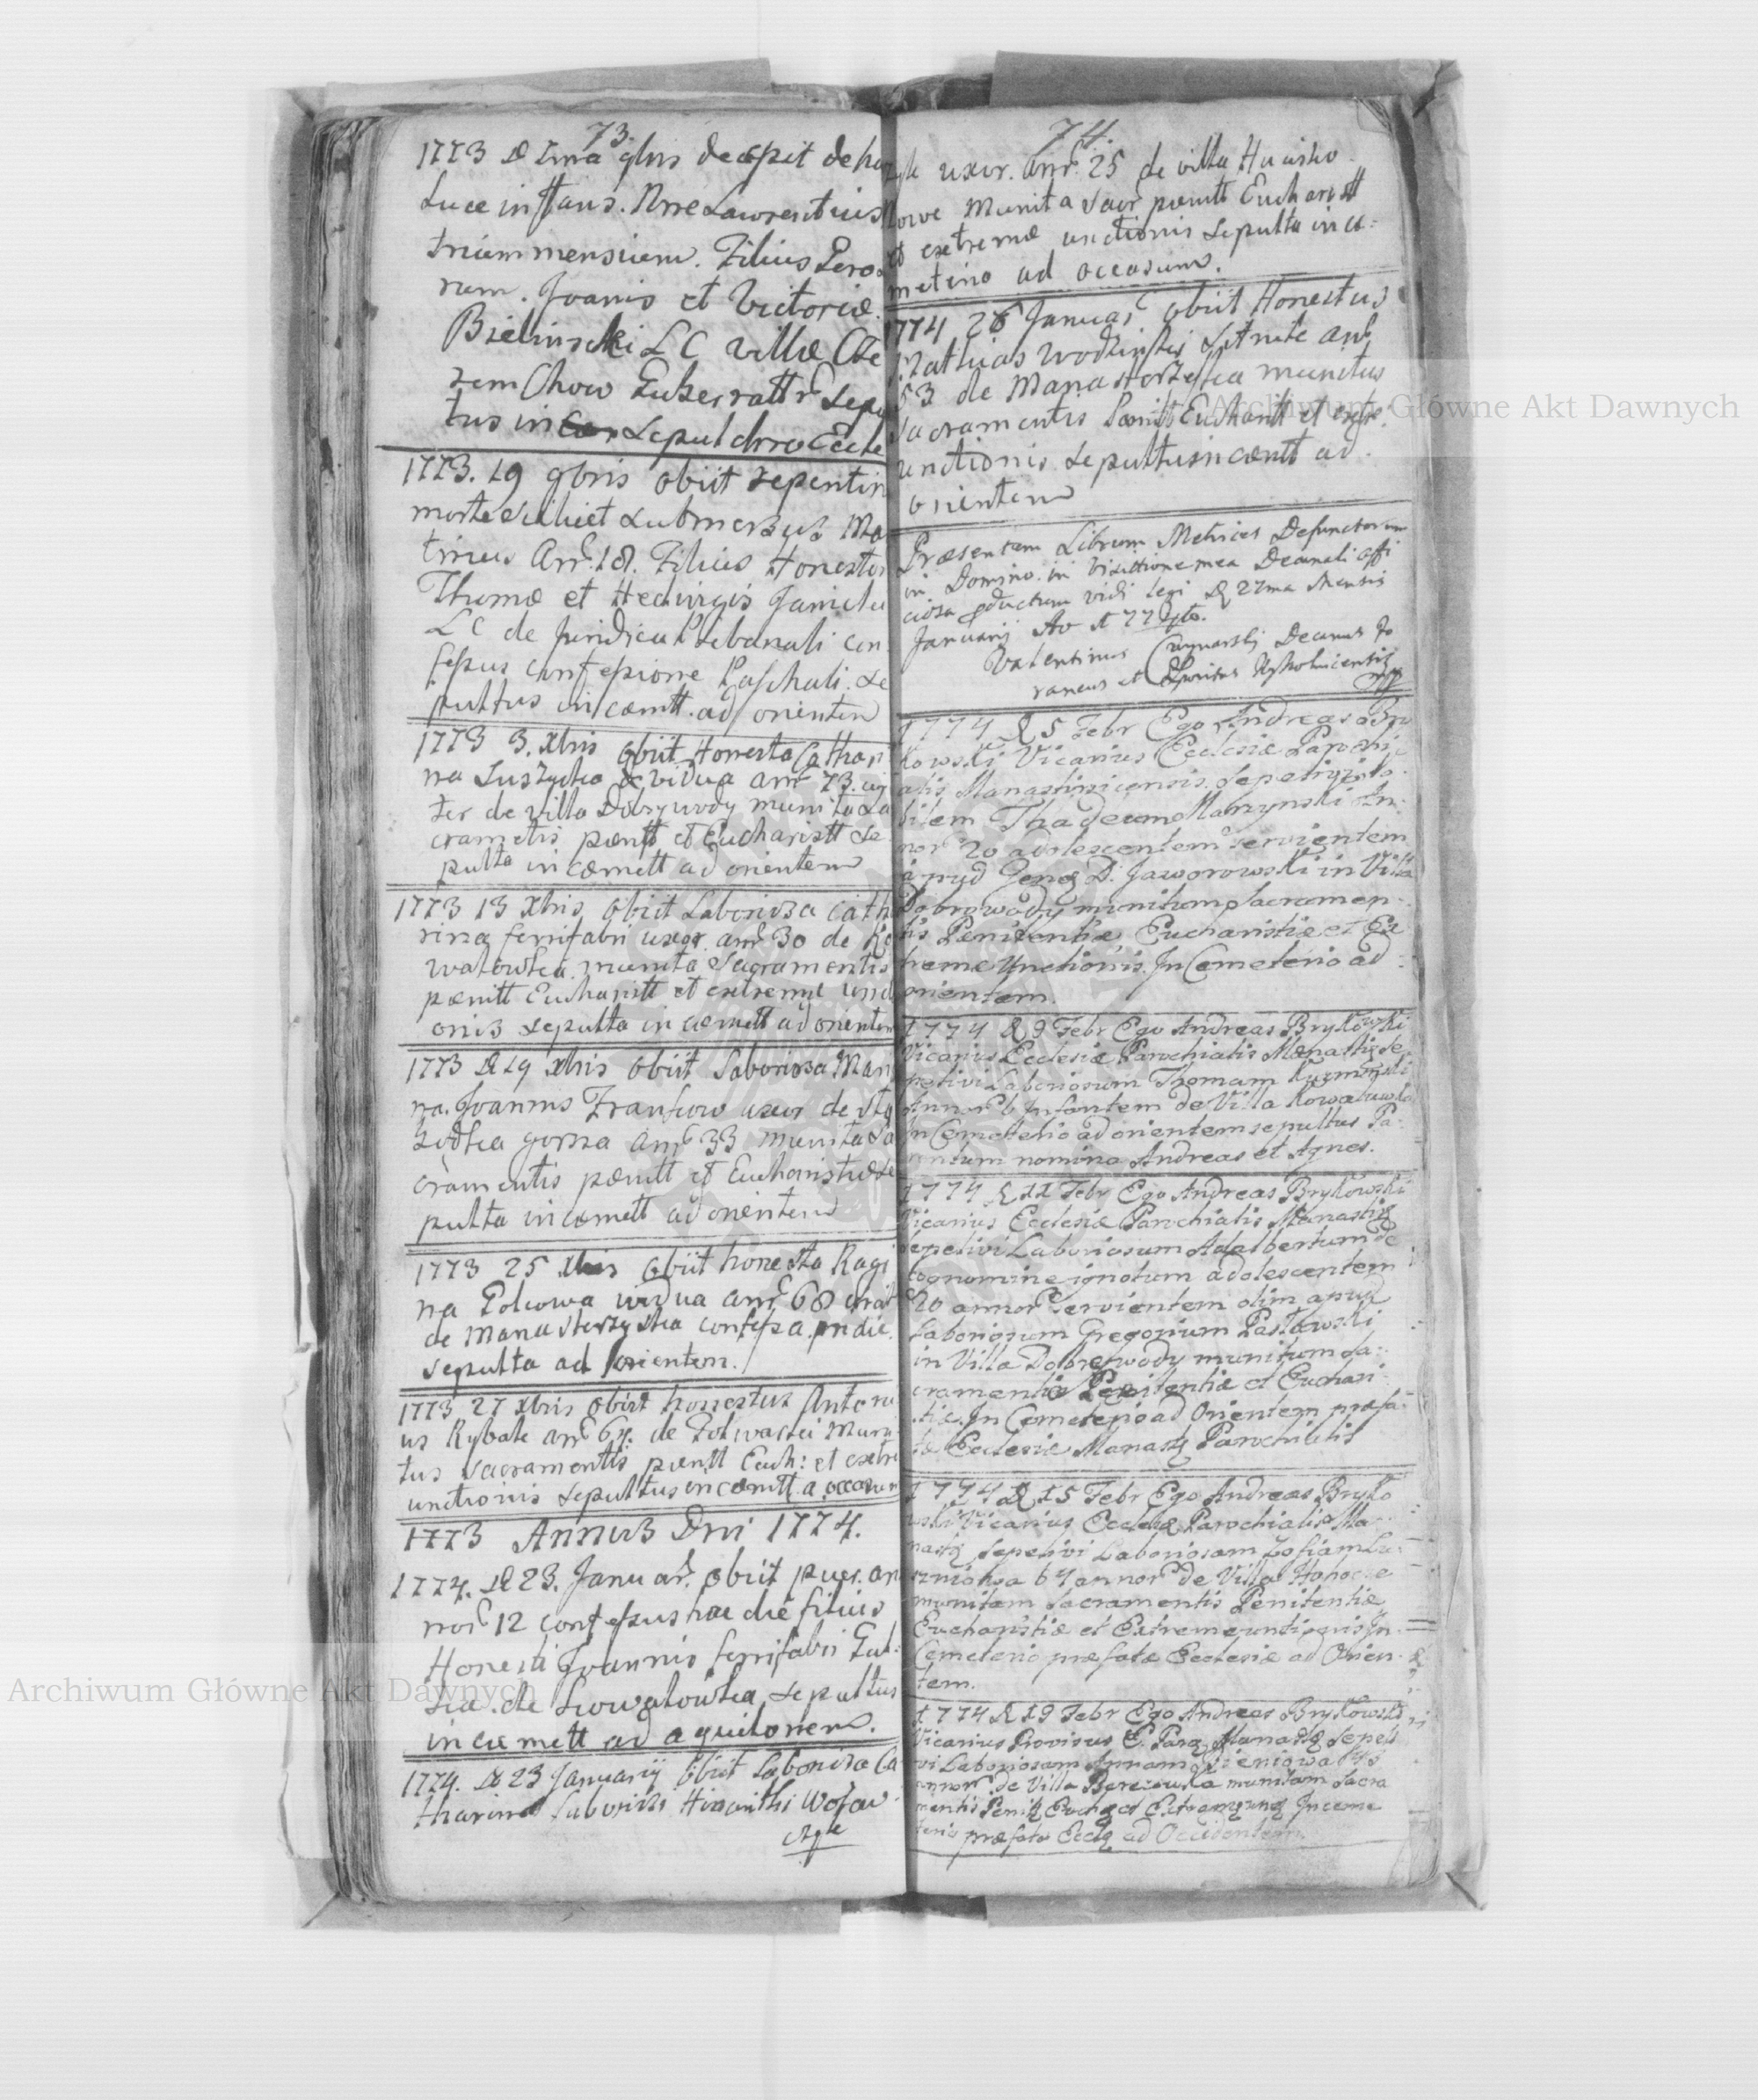 73.
1773 D 1ma 9bris decepit de hac
Luce infans. Nne Laurentius
trium mensium. Filius Gero
rum. Joanis et Victoriæ
Bielinscki L C villæ Cze
rem Chow sepu
tus in sepulchro Eccle
1773. 19 9bris obiit repentin
morte scilicet submersus Ma
tinus Anr. 18. Filius Honestor
Thomæ et Hedvigis Janicki
L C de Juridica Plebanali con
fessus confessione Paschali. Se
pultus in cæmtt. ad orientem
1773 3. Xbris obiit Honesta Cathari
na vidua anr 73. cir
ter de villa Dobrywody munita Sa
cramentis pænitt et Eucharistt Se
pulta in cæmett ad orientem
1773 13 Xbris obiit Laboriosa Cath
rina ferrifabri uxor anr 30 de Ko
watowka munita Sacramentis
pænitt Eucharistt et extremæ uncti
onis sepulta in cæmett ad orientem
1773 D 19 Xbris obiit Laboriosa Mari
na. Joannis Frankow uxor de Slo
bodka gorna anr 33 munita Sa
cramentis pænitt et Eucharistiæ se
pulta in cæmett ad orientem
1773 25 Xbris obiit honesta Regi
na vidua anr 60
de Manasterzyska confessa pridie.
sepulta ad orientem.
1773 27 Xbris obiit honestus Antoni
us Rybak anr de Folwarki Muni
tus Sacramentis pænitt Euch: et extre
unctionis sepultus in cæmtt. a occasum
1773 Annus Dni 1774.
1774. D 23. Januar. obiit puer. an
nor 12 confessus hac die filius
Honesti Joannis ferrifabri
de Kowalowka sepultus
in cæmett ad aquilonem.
1774. D 23 Januarij obiit Laboriosa Ca
tharina Laboriosi Hiacinthi
74.
uxor. anr. 25 de villa
munita Sacr pænitt Eucharistt
et extremæ unctionis sepulta in cæ:
meterio ad occasum.
1774 26 Januar obiit Honestus
Mathias Wodzinski anr
53 de Manasterzyska munitus
Sacramentis Pænitt Eucharistt et extre.
unctionis sepultus in cæmtt ad
orientem
Præsentem Librum Metrices Defunctorum
in Domino in Visittione mea Decanali offi
ciosa pductum vidi legi D 27ma Mensis
Januarij Ao
Valentinus Decanus Fo
raneus et
1774 D 5 Febr Ego Andreas Bry
kowski Vicarius Ecclesiæ Parochi
alis Manastirzicensis. Sepelivi No
bilem Thadeum Marzynski An:
nor 20 adolescentem servientem
apud Genes D: Jaworowski in Villa
Dobrowody munitum Sacramen:
tis Penitentiæ Eucharistiæ et Ex
tremæ Unctionis. In Cemeterio ad
orientem.
1774 D 9 Febr Ego Andreas Brykowski
Vicarius Ecclesiæ Parochialis Manasti Se
pelivi Laboriosum Thomam
Annor 6 Infantem de Villa Kowalowka
In Cemeterio ad orientem sepultus Pa:
rentum nomina Andreas et Agnes.
1774 D 11 Febr Ego Andreas Brykowski
Vicarius Ecclesiæ Parochialis Manastiz
Sepelivi Laboriosum Adalbertum de
Cognomine ignotum adolescentem
20 annor servientem olim apud
Laboriosum Gregorium Pastawski
in Villa Dobrewody munitum Sa:
cramentis Penitentiæ et Euchari
stiæ. In Cemeterio ad Orientem præfa:
tæ Ecclesiæ Manastz Parochialis
1774 D 15 Febr Ego Andreas Bryko
wski Vicarius Ecclesiæ Parochialis Ma:
nastz Sepelivi Laboriosam Zofiam
annor de Villa
munitam Sacramentis Penitentiæ
Eucharistiæ et Extreme untionis In
Cemeterio præfatæ Ecclesiæ ad Orien:
tem.
1774 D 19 Febr Ego Andreas Brykowski
Vicarius Provisus E. Paro Manastz Sepeli
vi Laboriosam Annam
annor de Villa Berezowka munitam Sacra
mentis Penit Euch et Extrem unq In ceme
terio præfatæ Eccle ad Occidentem.
Archiwum Główne Akt Dawnych
Archiwum Główne Akt Dawnych